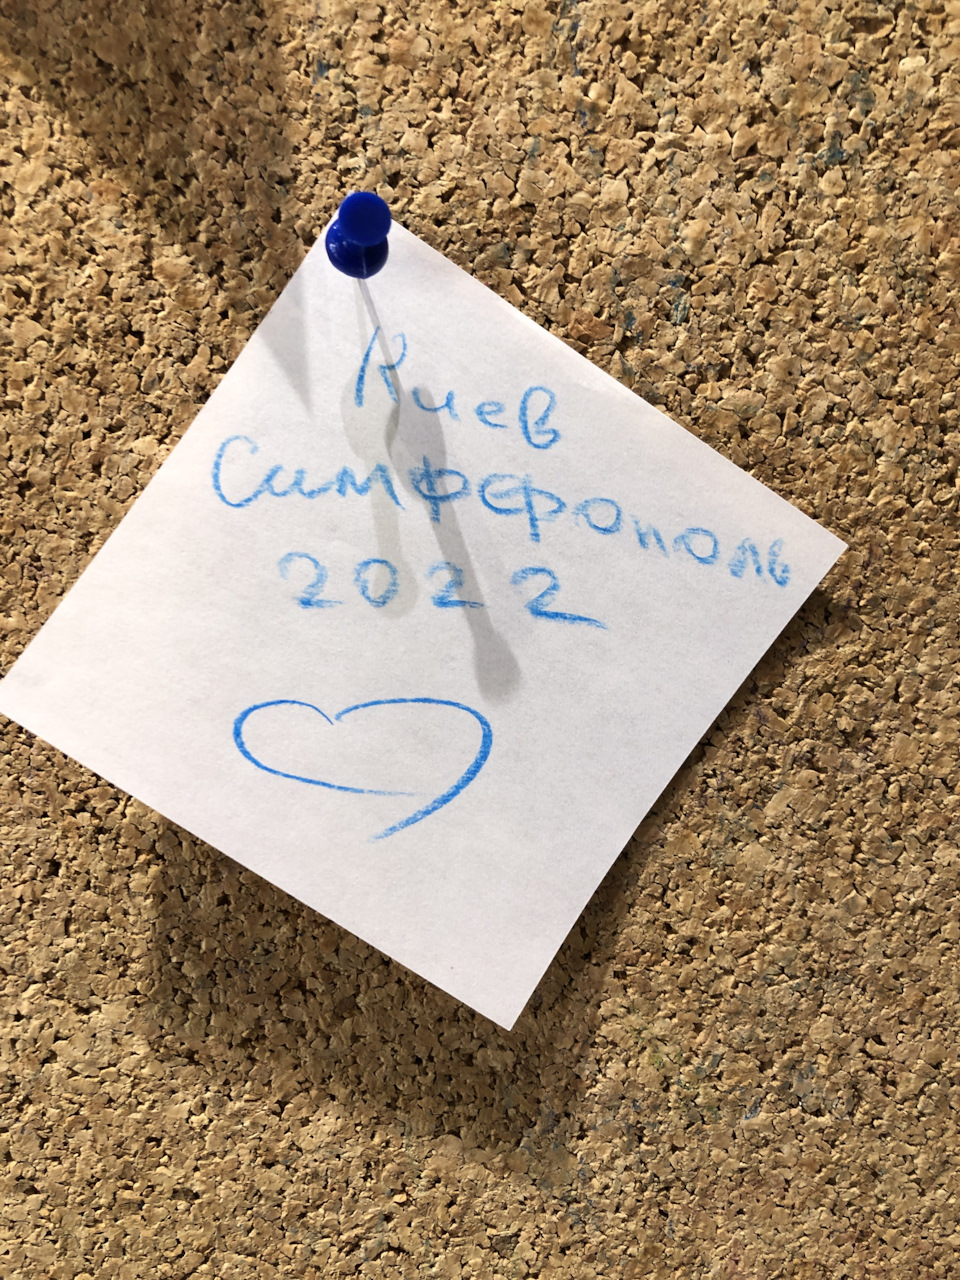 Киев
Симферополь
2022